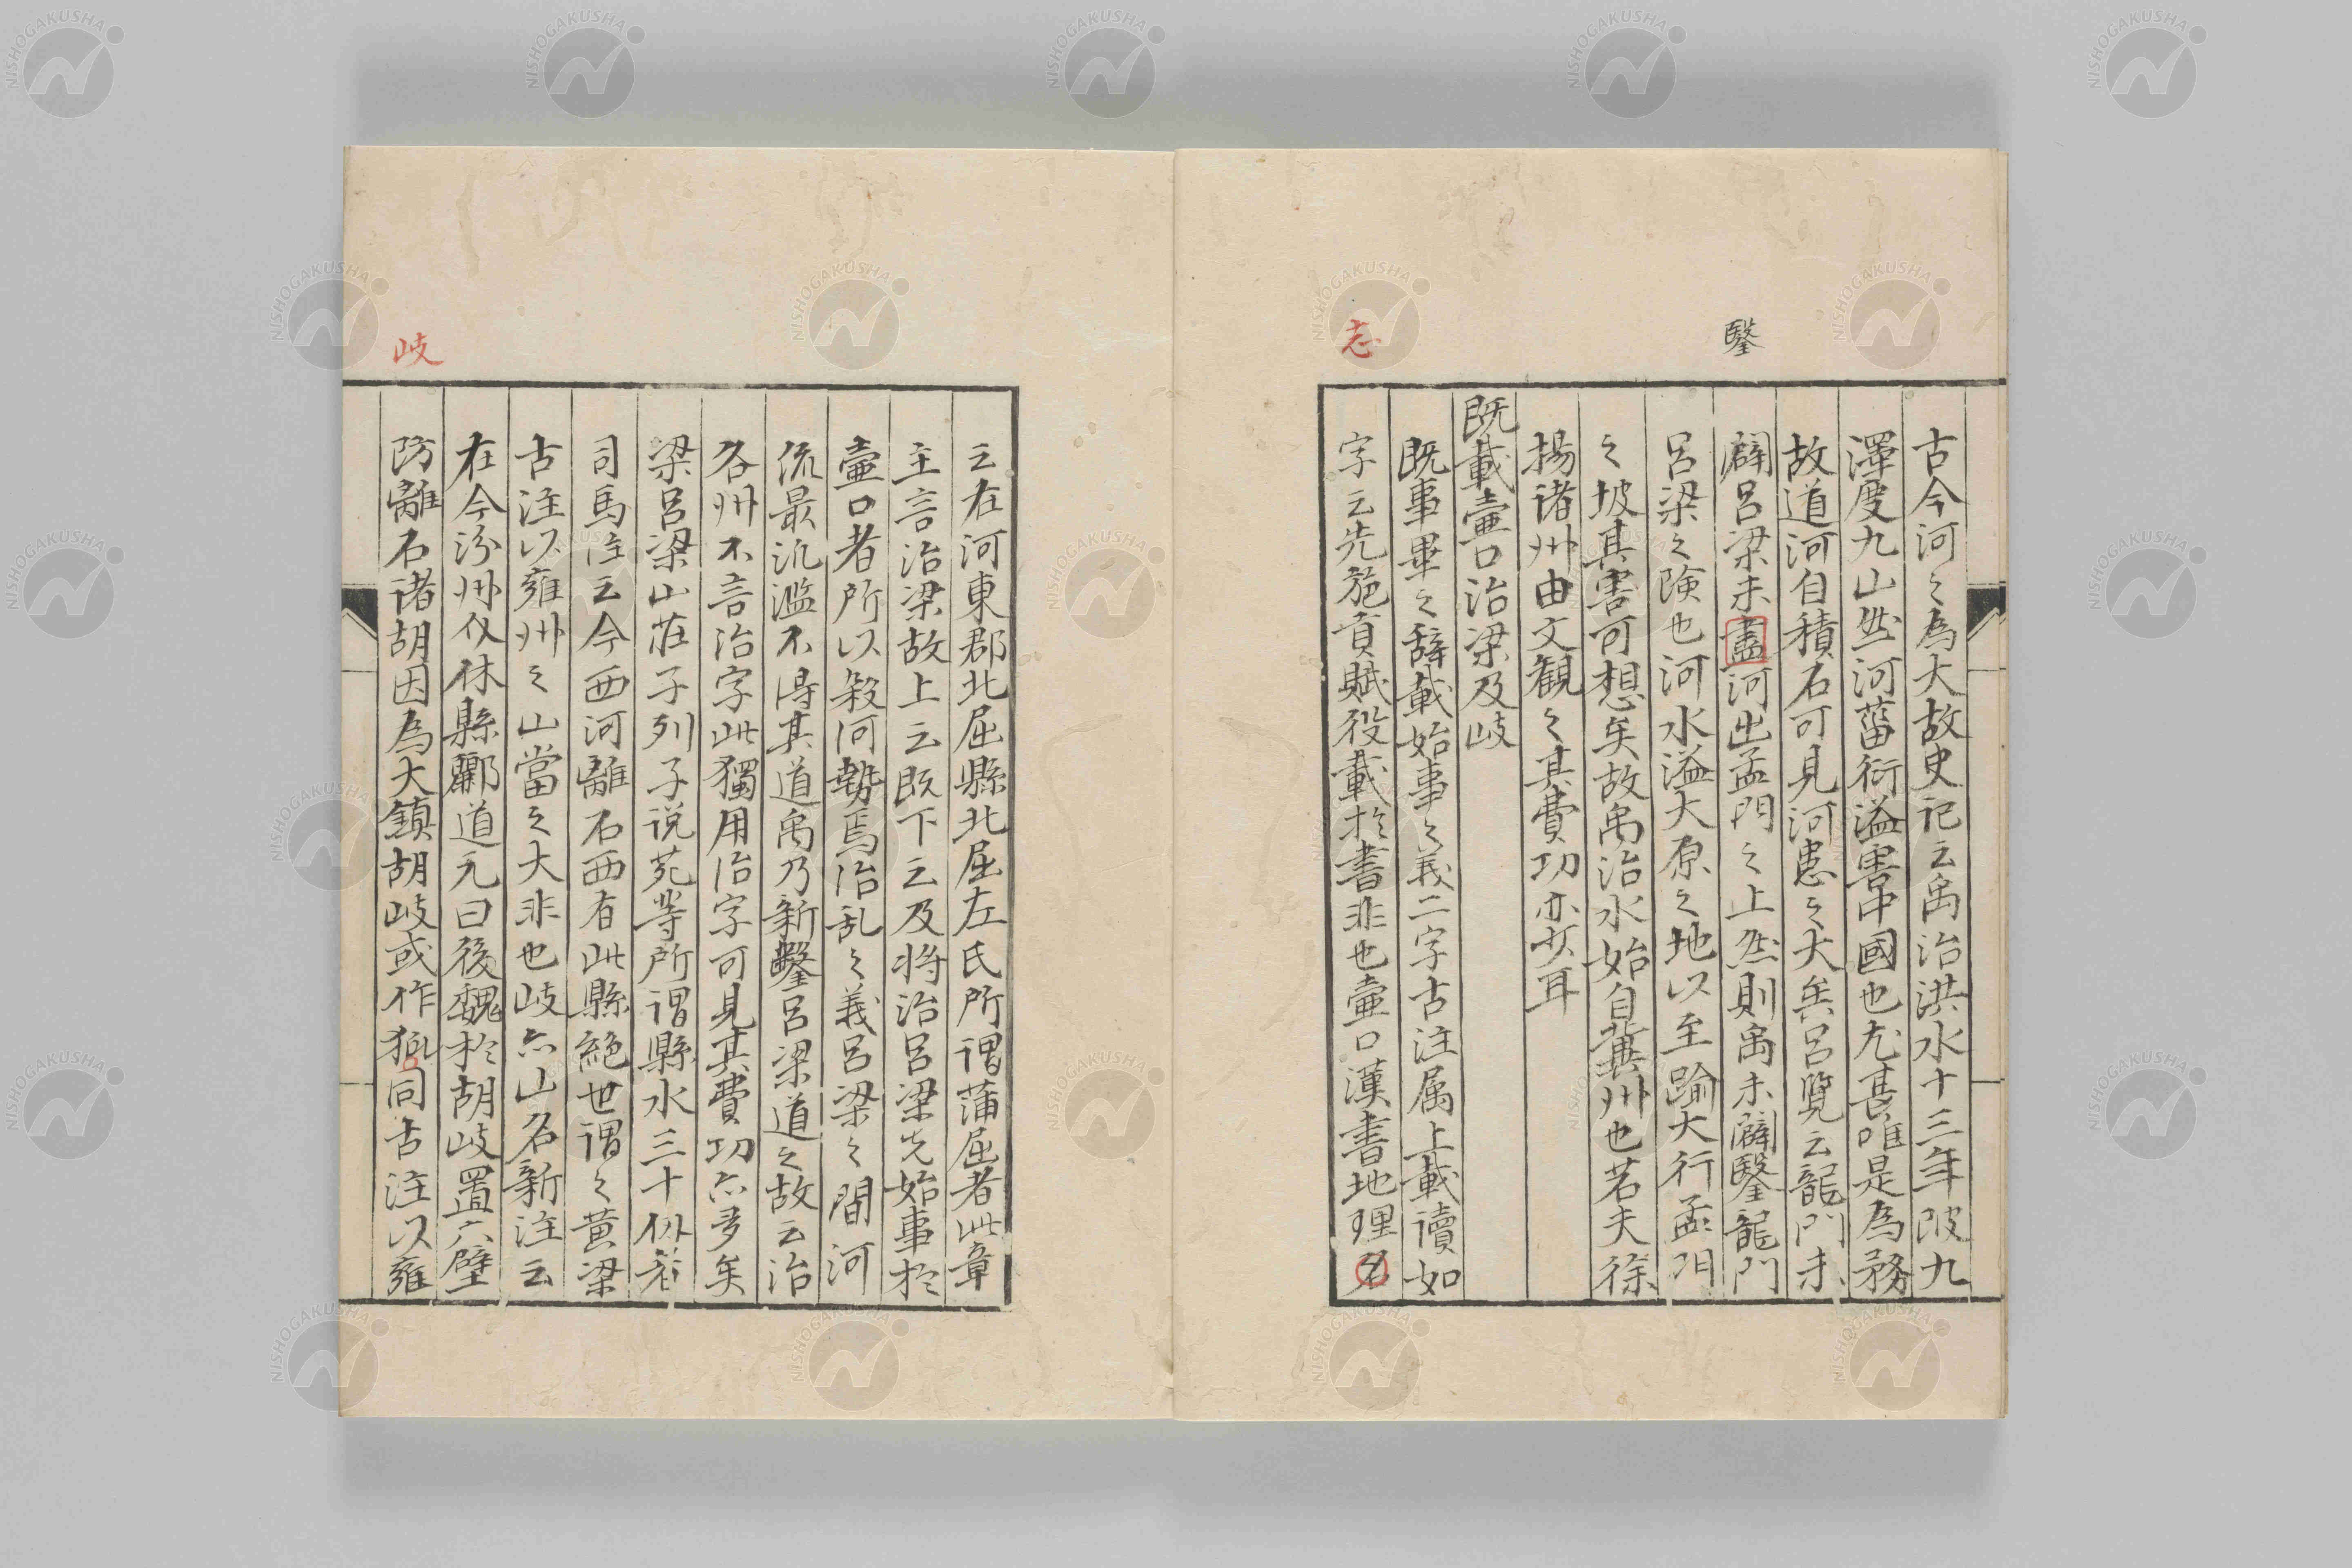 鑿
志
古今河之為大故史記云禹治洪水十三年陂九
澤度九山然河菑衍溢害中國也尤甚唯是為務
故道河自積石可見河患之大矣呂覽云龍門未
闢呂梁未鑿河出孟門之上然則禹未闢鑿龍門
呂梁之険也河水溢大原之地以至踰大行孟門
之坡其害可想矣故禹治水始自冀州也若夫徐
揚诸州由文観之其費功亦少耳
既載壷口治梁及岐
既事畢之辞載始事之義二字古注属上載讀如
字云先施貢賦役載於書非也壷口漢書地理名
岐
云在河東郡北屈縣北屈左氏所謂蒲屈者此章
主言治梁故上云既下云及将治呂梁先始事於
壷口者所以殺河勢焉治乱之義呂梁之間河
流最氾濫不得其道禹乃新鑿呂梁道之故云治
各州不言治字此獨用治字可見其費功亦多矣
梁呂梁山荘子列子说苑等所謂縣水三十仭者
司馬注云今西河離石西有此縣絶世謂之黄梁
古注以雍州之山當之大非也岐亦山名新注云
在今汾州介休縣酈道元曰後魏於胡岐置六壁
防離石诸胡因為大鎮胡岐或作狐同古注以雍
NISHOGAKUSHA